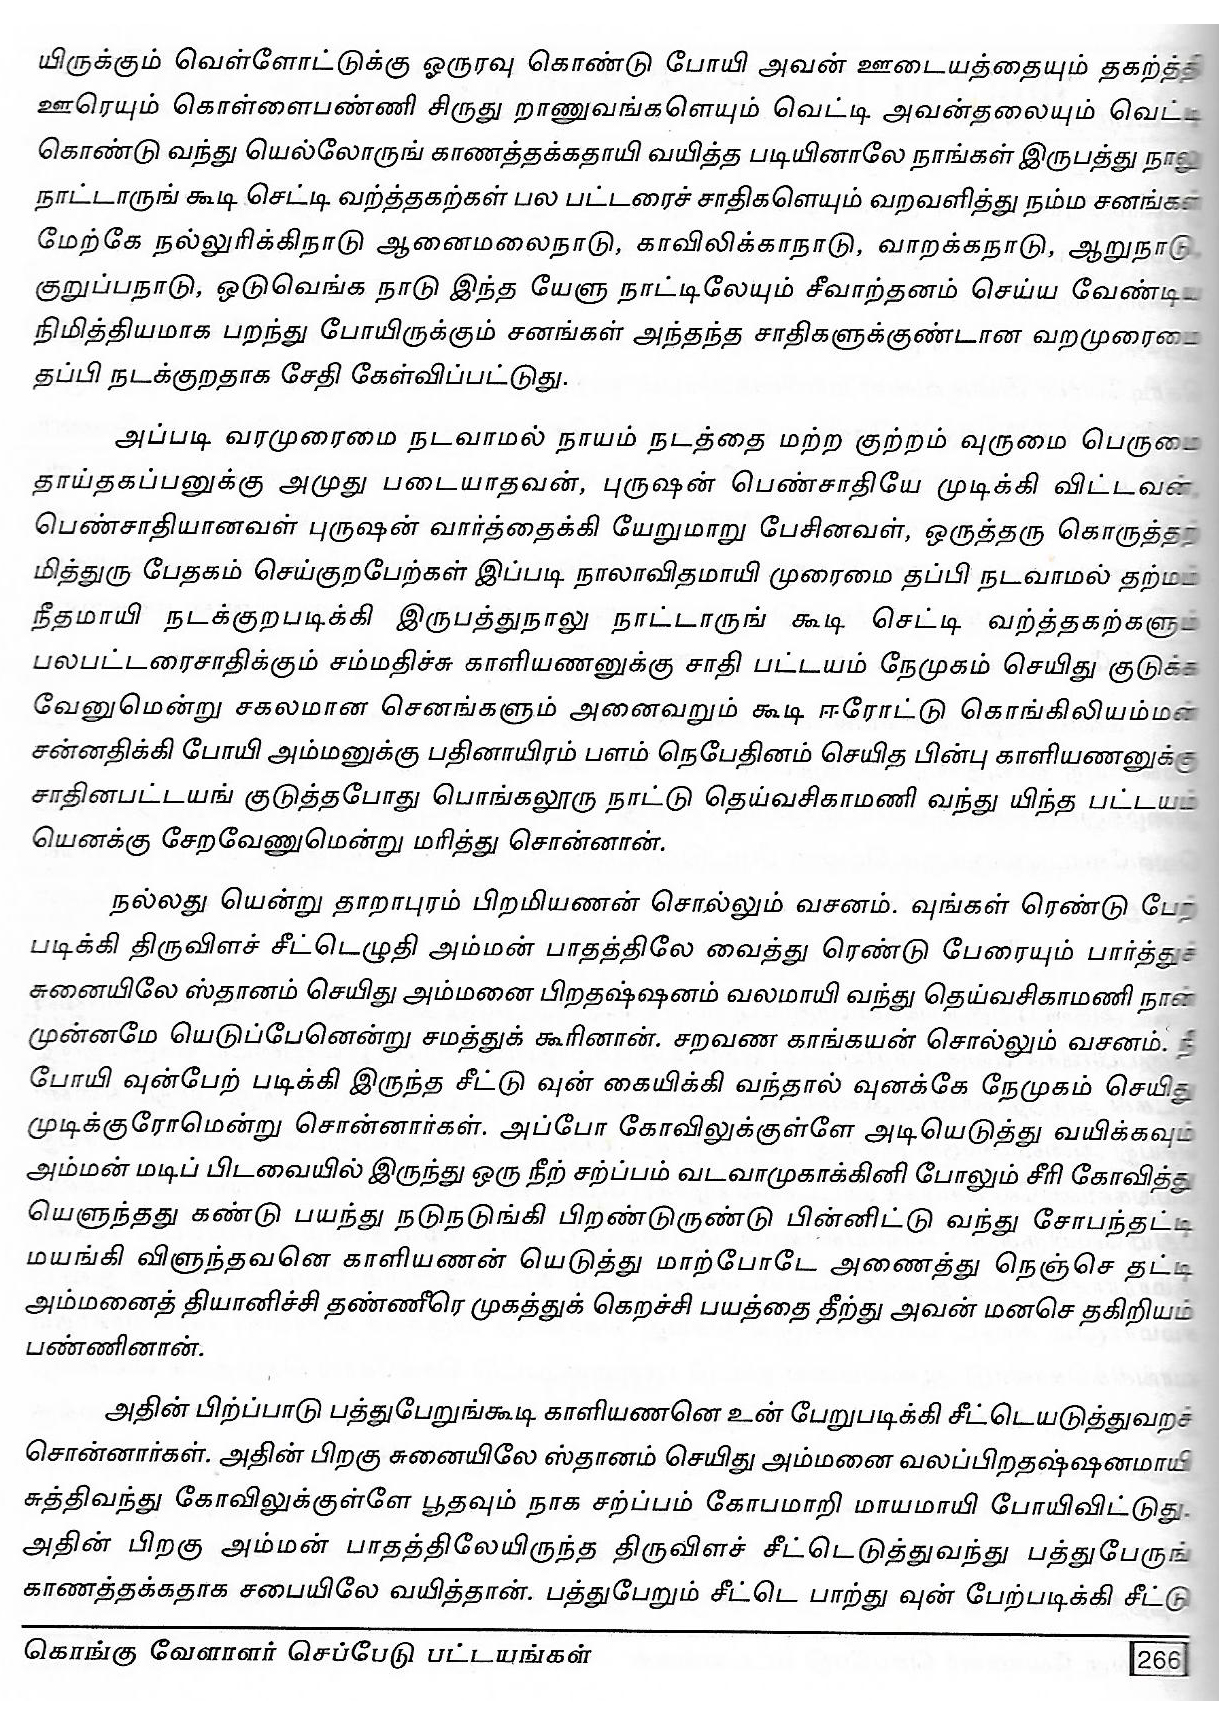 யிருக்கும் வெள்ளோட்டுக்கு ஓருரவு கொண்டு போயி அவன் ஊடையத்தையும் தகற்த்தி
ஊரெயும் கொள்ளைபண்ணி சிருது றாணுவங்களெயும் வெட்டி அவன்தலையும் வெட்டி
கொண்டு வந்து யெல்லோருங் காணத்தக்கதாயி வயித்த படியினாலே நாங்கள் இருபத்து நாலு
நாட்டாருங் கூடி செட்டி வற்த்தகற்கள் பல பட்டரைச் சாதிகளெயும் வறவளித்து நம்ம சனங்கள்
மேற்கே நல்லுரிக்கிநாடு ஆனைமலைநாடு, காவிலிக்காநாடு, வாறக்கநாடு, ஆறுநாடு,
குறுப்பநாடு, ஒடுவெங்க நாடு இந்த யேளு நாட்டிலேயும் சீவாற்தனம் செய்ய வேண்டிய
நிமித்தியமாக பறந்து போயிருக்கும் சனங்கள் அந்தந்த சாதிகளுக்குண்டான வறமுரைமை
தப்பி நடக்குறதாக சேதி கேள்விப்பட்டுது.
அப்படி வரமுரைமை நடவாமல் நாயம் நடத்தை மற்ற குற்றம் வுருமை பெருமை
தாய்தகப்பனுக்கு அமுது படையாதவன், புருஷன் பெண்சாதியே முடிக்கி விட்டவன்,
பெண்சாதியானவள் புருஷன் வார்த்தைக்கி யேறுமாறு பேசினவள், ஒருத்தரு கொருத்தர்
மித்துரு பேதகம் செய்குறபேற்கள் இப்படி நாலாவிதமாயி முரைமை தப்பி நடவாமல் தற்மம்
நீதமாயி நடக்குறபடிக்கி இருபத்துநாலு நாட்டாருங் கூடி செட்டி வற்த்தகற்களும்
பலபட்டரைசாதிக்கும் சம்மதிச்சு காளியணனுக்கு சாதி பட்டயம் நேமுகம் செயிது குடுக்க
வேனுமென்று சகலமான செனங்களும் அனைவறும் கூடி ஈரோட்டு கொங்கிலியம்மன்
சன்னதிக்கி போயி அம்மனுக்கு பதினாயிரம் பளம் நெபேதினம் செயித பின்பு காளியணனுக்கு
சாதினபட்டயங் குடுத்தபோது பொங்கலூரு நாட்டு தெய்வசிகாமணி வந்து யிந்த பட்டயம்
யெனக்கு சேறவேணுமென்று மரித்து சொன்னான்.
நல்லது யென்று தாறாபுரம் பிறமியணன் சொல்லும் வசனம். வுங்கள் ரெண்டு பேற்
படிக்கி திருவிளச் சீட்டெழுதி அம்மன் பாதத்திலே வைத்து ரெண்டு பேரையும் பார்த்துச்
சுனையிலே ஸ்தானம் செயிது அம்மனை பிறதஷ்ஷனம் வலமாயி வந்து தெய்வசிகாமணி நான்
முன்னமே யெடுப்பேனென்று சமத்துக் கூரினான். சறவண காங்கயன் சொல்லும் வசனம். நீ
போயி வுன்பேற் படிக்கி இருந்த சீட்டு வுன் கையிக்கி வந்தால் வுனக்கே நேமுகம் செயிது
முடிக்குரோமென்று சொன்னார்கள். அப்போ கோவிலுக்குள்ளே அடியெடுத்து வயிக்கவும்
அம்மன் மடிப் பிடவையில் இருந்து ஒரு நீற் சற்ப்பம் வடவாமுகாக்கினி போலும் சீரி கோவித்து
யெளுந்தது கண்டு பயந்து நடுநடுங்கி பிறண்டுருண்டு பின்னிட்டு வந்து சோபந்தட்டி
மயங்கி விளுந்தவனெ காளியணன் யெடுத்து மாற்போடே அணைத்து நெஞ்செ தட்டி
அம்மனைத் தியானிச்சி தண்ணீரெ முகத்துக் கெறச்சி பயத்தை தீற்து அவன் மனசெ தகிறியம்
பண்ணினான்.
அதின் பிற்ப்பாடு பத்துபேறுங்கூடி காளியணனெ உன் பேறுபடிக்கி சீட்டெயடுத்துவறச்
சொன்னார்கள். அதின் பிறகு சுனையிலே ஸ்தானம் செயிது அம்மனை வலப்பிறதஷ்ஷனமாயி
சுத்திவந்து கோவிலுக்குள்ளே பூதவும் நாக சற்ப்பம் கோபமாறி மாயமாயி போயிவிட்டுது.
அதின் பிறகு அம்மன் பாதத்திலேயிருந்த திருவிளச் சீட்டெடுத்துவந்து பத்துபேருங்
காணத்தக்கதாக சபையிலே வயித்தான். பத்துபேறும் சீட்டெ பாற்து வுன் பேற்படிக்கி சீட்டு
கொங்கு வேளாளர் செப்பேடு பட்டயங்கள்
266